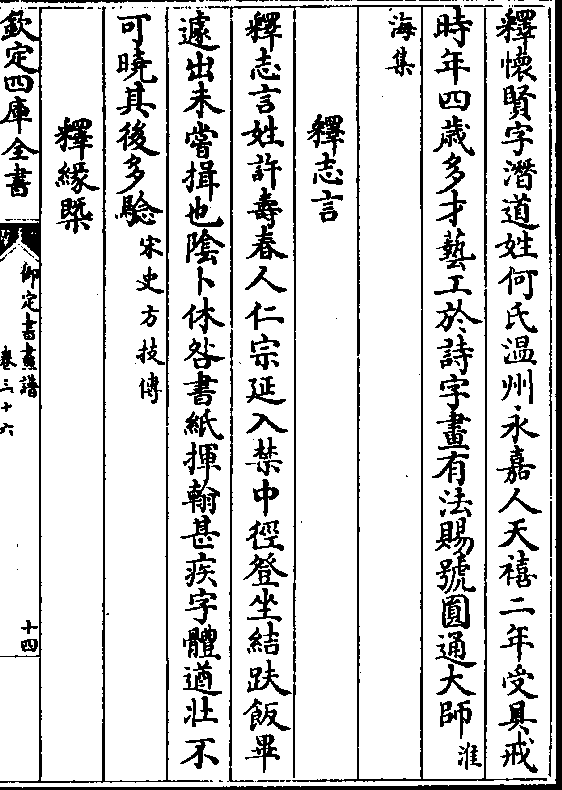 釋懷賢字潛道姓何氏温州永嘉人天禧二年受具戒
時年四歳多才藝工於詩字畫有法賜號圓通大師淮
海集
釋志言
釋志言姓許壽春人仁宗延入禁中徑登坐結趺飯畢
遽出未嘗揖也陰卜休咎書紙揮翰甚疾字體遒壯不
可曉其後多驗宋史方技傳
釋緣槩
欽定四庫全書
御定書畫譜
卷三十六
十四